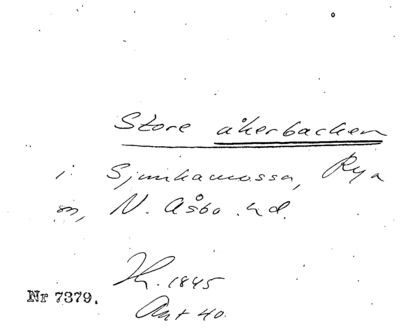 Store åkerbacken
i Sjunkamossa, Rya
sn, N. Åsbo hd.
Th. 1845
Ant 40.
Nr 7379.